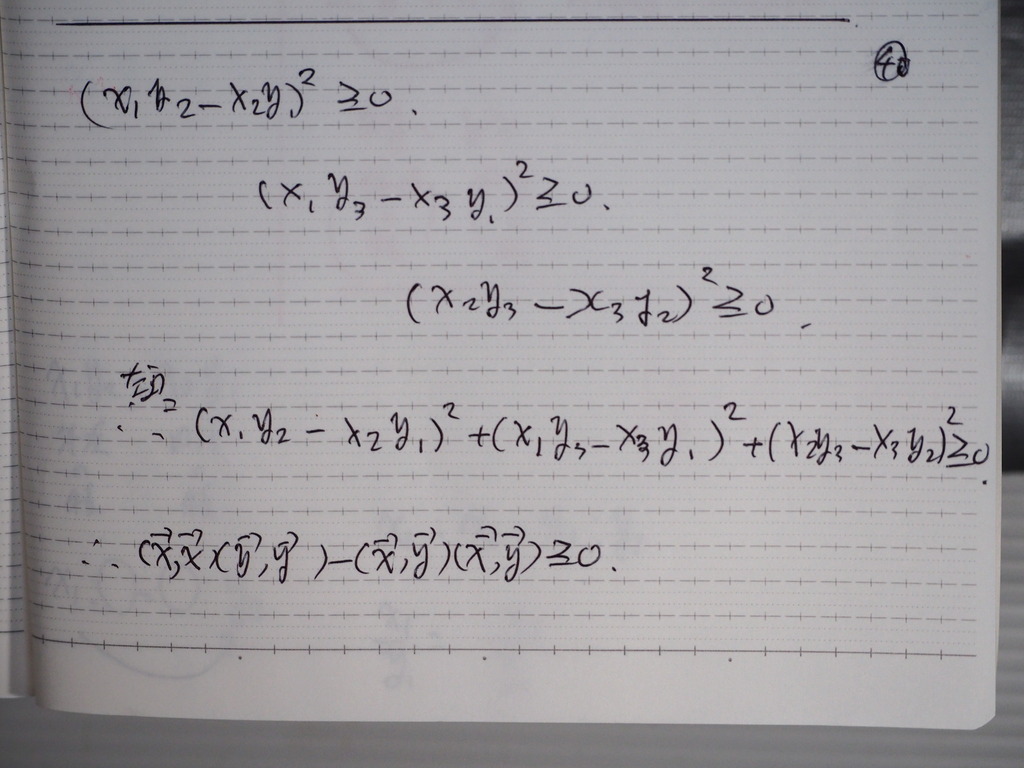 (x₁y₂ − x₂y₁)² ≧ 0.
(x₁y₃ − x₃y₁)² ≧ 0.
(x₂y₃ − x₃y₂)² ≧ 0.
∴ (x₁y₂ − x₂y₁)² + (x₁y₃ − x₃y₁)² + (x₂y₃ − x₃y₂)² ≧ 0.
∴ (x⃗, x⃗)(y⃗, y⃗) − (x⃗, y⃗)(x⃗, y⃗) ≧ 0.